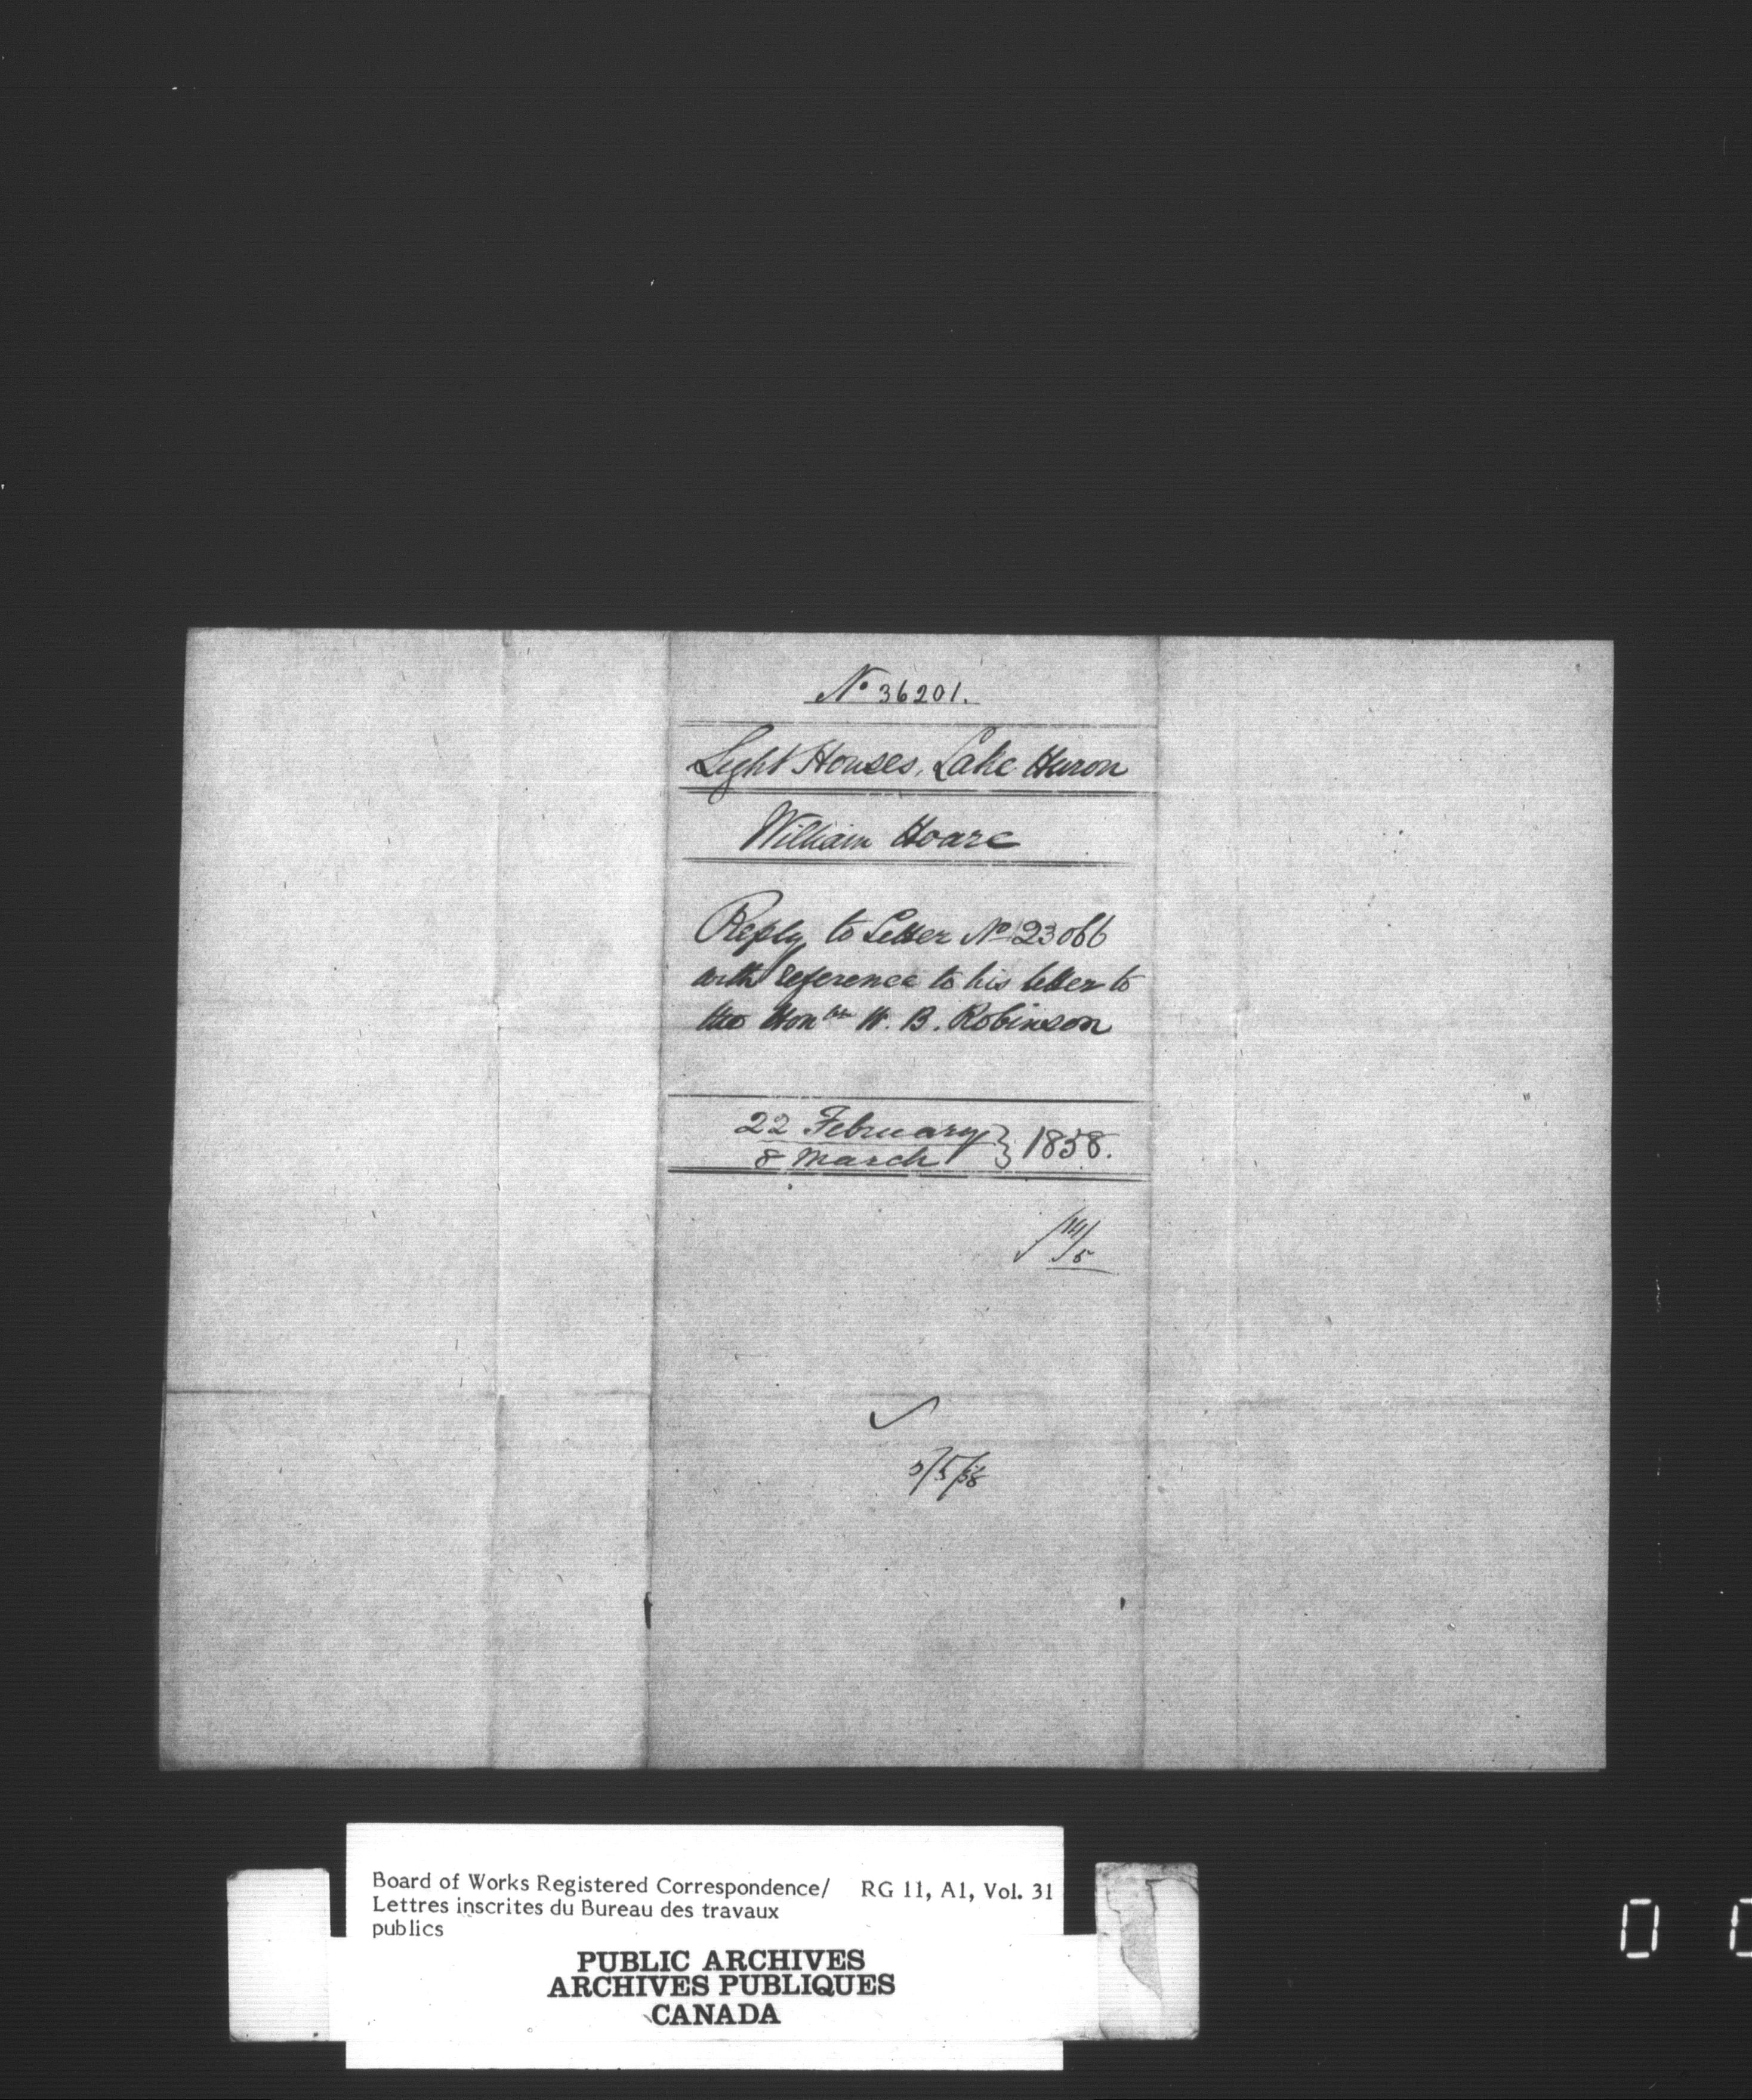 No 36201.
Light Houses, Lake Huron
William Hoare
Reply to Letter No 23066
with reference to his letter to
the Honble W. B. Robinson
22 February } 1858.
8 March
5
5/58
Board of Works Registered Correspondence/ RG 11, A1, Vol. 31
Lettres inscrites du Bureau des travaux
publics
PUBLIC ARCHIVES
ARCHIVES PUBLIQUES
CANADA
0 0